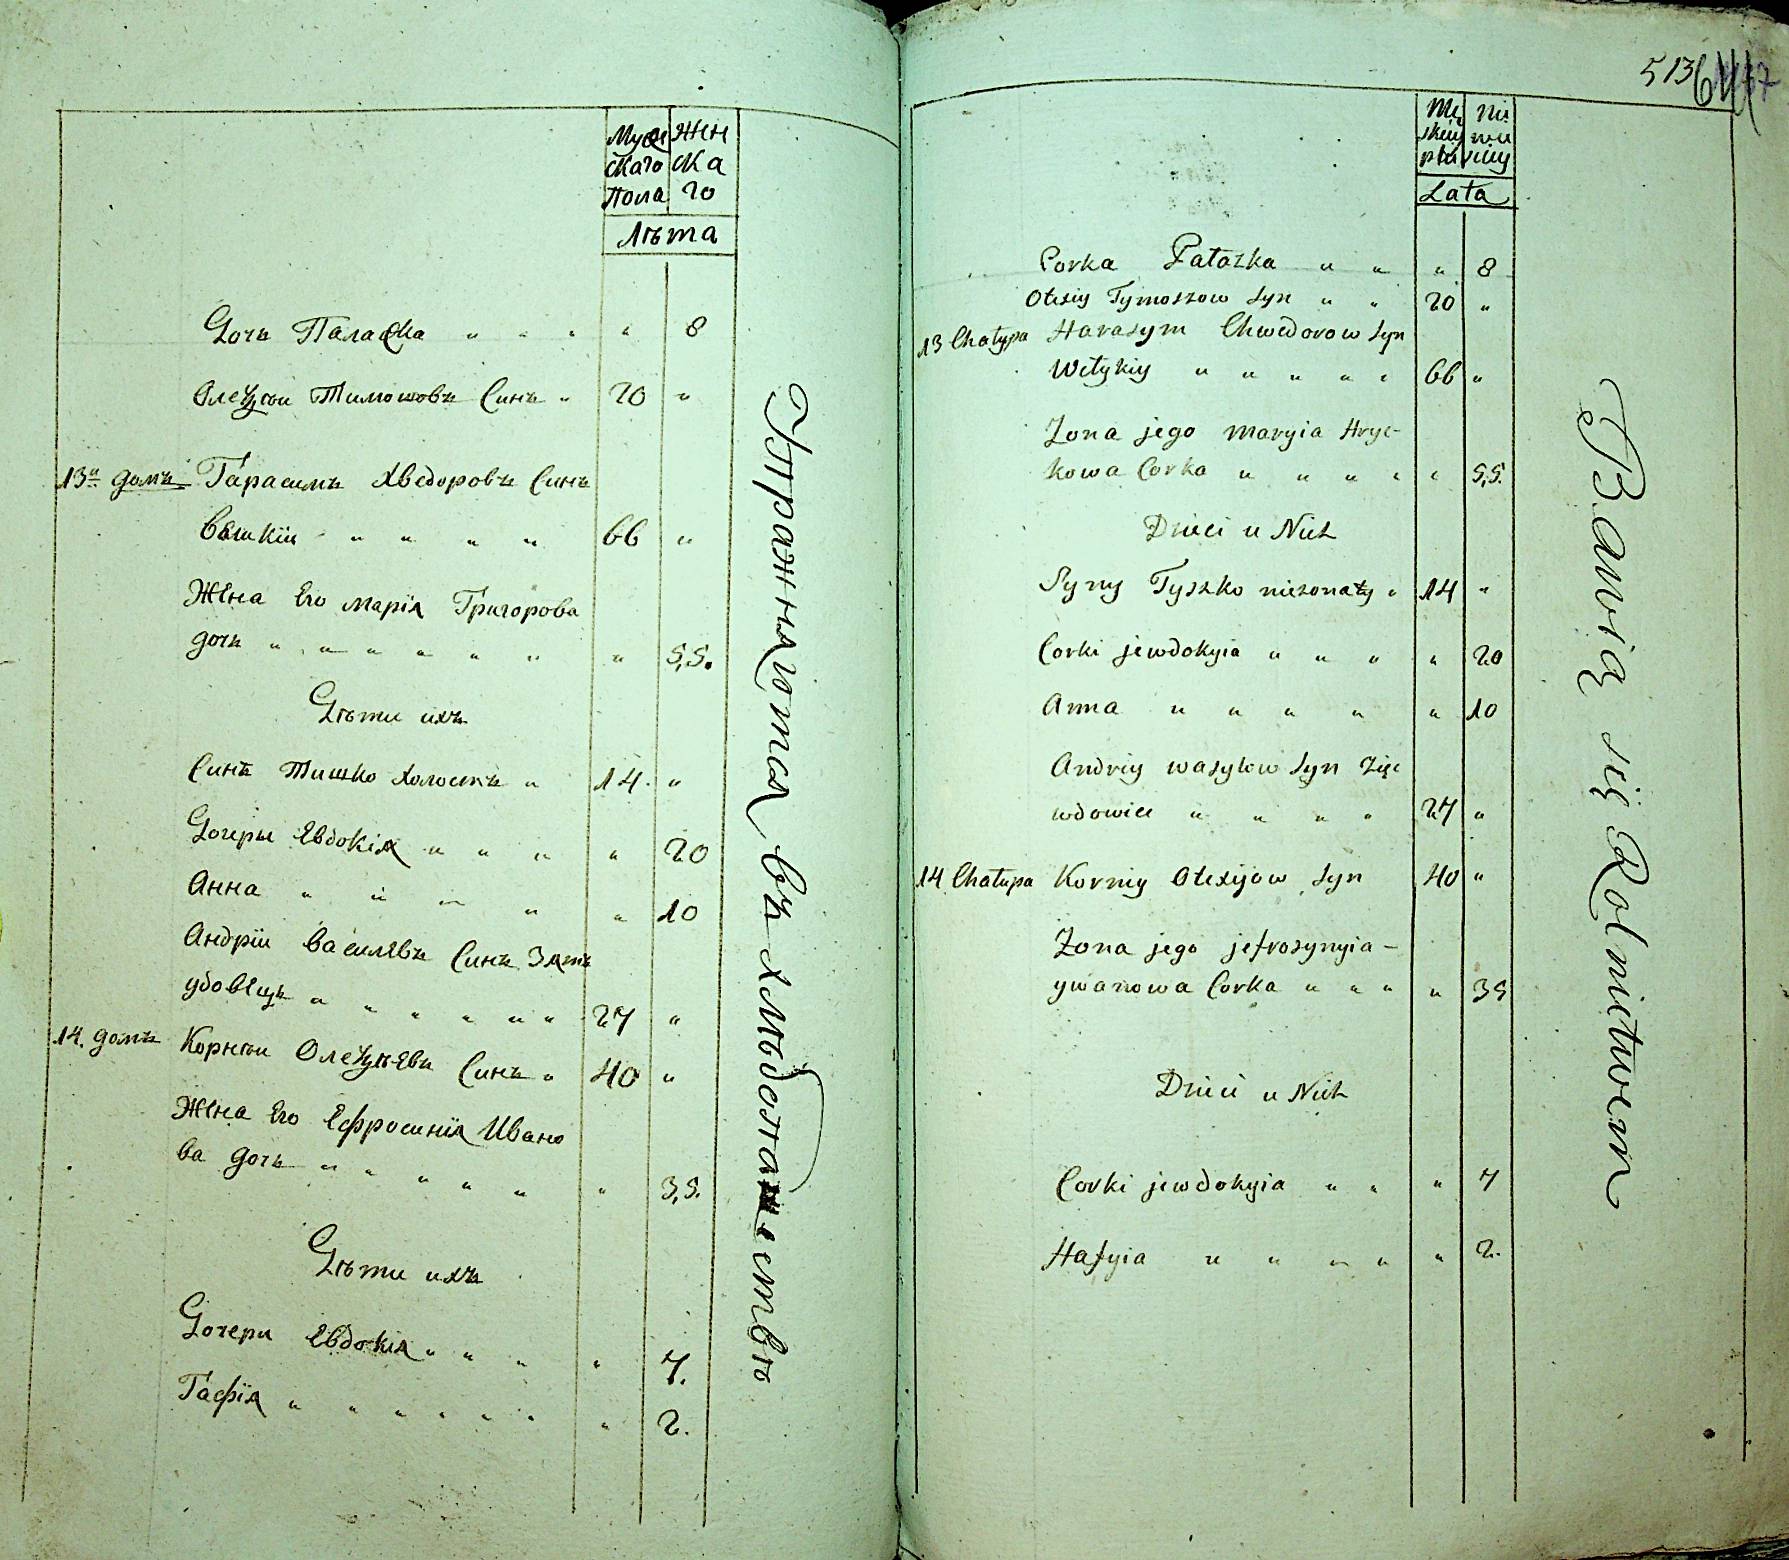 Муж Жен
скаго ска
Пола го
Лѣта
Дочь Паласка " " " " 8
Олексѣй Тимошовъ Синъ " 20 "
13й домъ Гарасимъ Хведоровъ Синъ
" " " " 66 "
Жена Его Марія Григорова
дочь " " " " " " " 55.
Дѣти ихъ
Синъ Тишко холостъ " 14. "
Дочеры Евдокія " " " " 20
Анна " " " " " 10
Андрій Василевъ Синъ Зять
удовецъ " " " " " " 27 "
14. домъ Корнѣй Олексѣевъ Синъ " 40 "
Жена Его Ефросинія Ивано
ва дочь " " " " " " 35.
Дѣти ихъ
Дочери Евдокія " " " " 7.
Гафія " " " " " " " 2.
Упражняются въ хлѣбопашествѣ
513
Mę Nie
skiey wie
płci sciey
Lata
Corka Pałazka " " " 8
Olexiy Tymoszow Syn " " 20 "
13 Chałupa Harasym Chwedorow Syn
Welykiy " " " " " 66 "
Zona jego Maryia Hryc-
kowa Corka " " " " " 55.
Dzieci u Nich
Syny Tyszko niezonaty " 14 "
Corki jewdokyia " " " " 20
Anna " " " " " 10
Andriy Wasylow Syn Zięc
wdowiec " " " " 27 "
14 Chałupa Korniy Olexijow Syn 40 "
Zona jego jefrosynyia -
ywanowa Corka " " " " 35
Dzieci u Nich
Corki jewdokyia " " " 7
Hafyia " " " " " 2.
Bawią się Rolnictwem